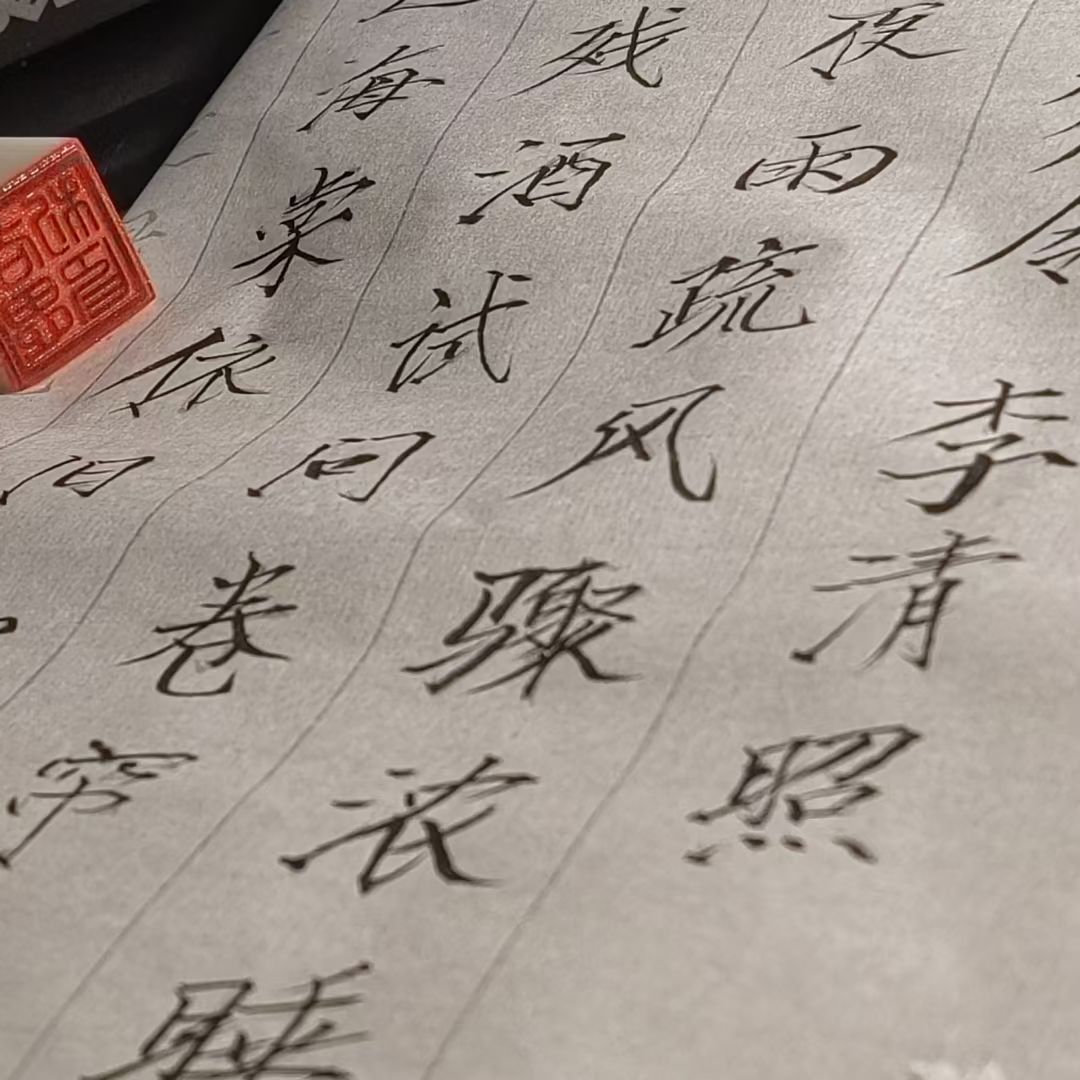 令李清照
夜雨疏风骤浓睡
残酒试问卷帘
海棠依旧